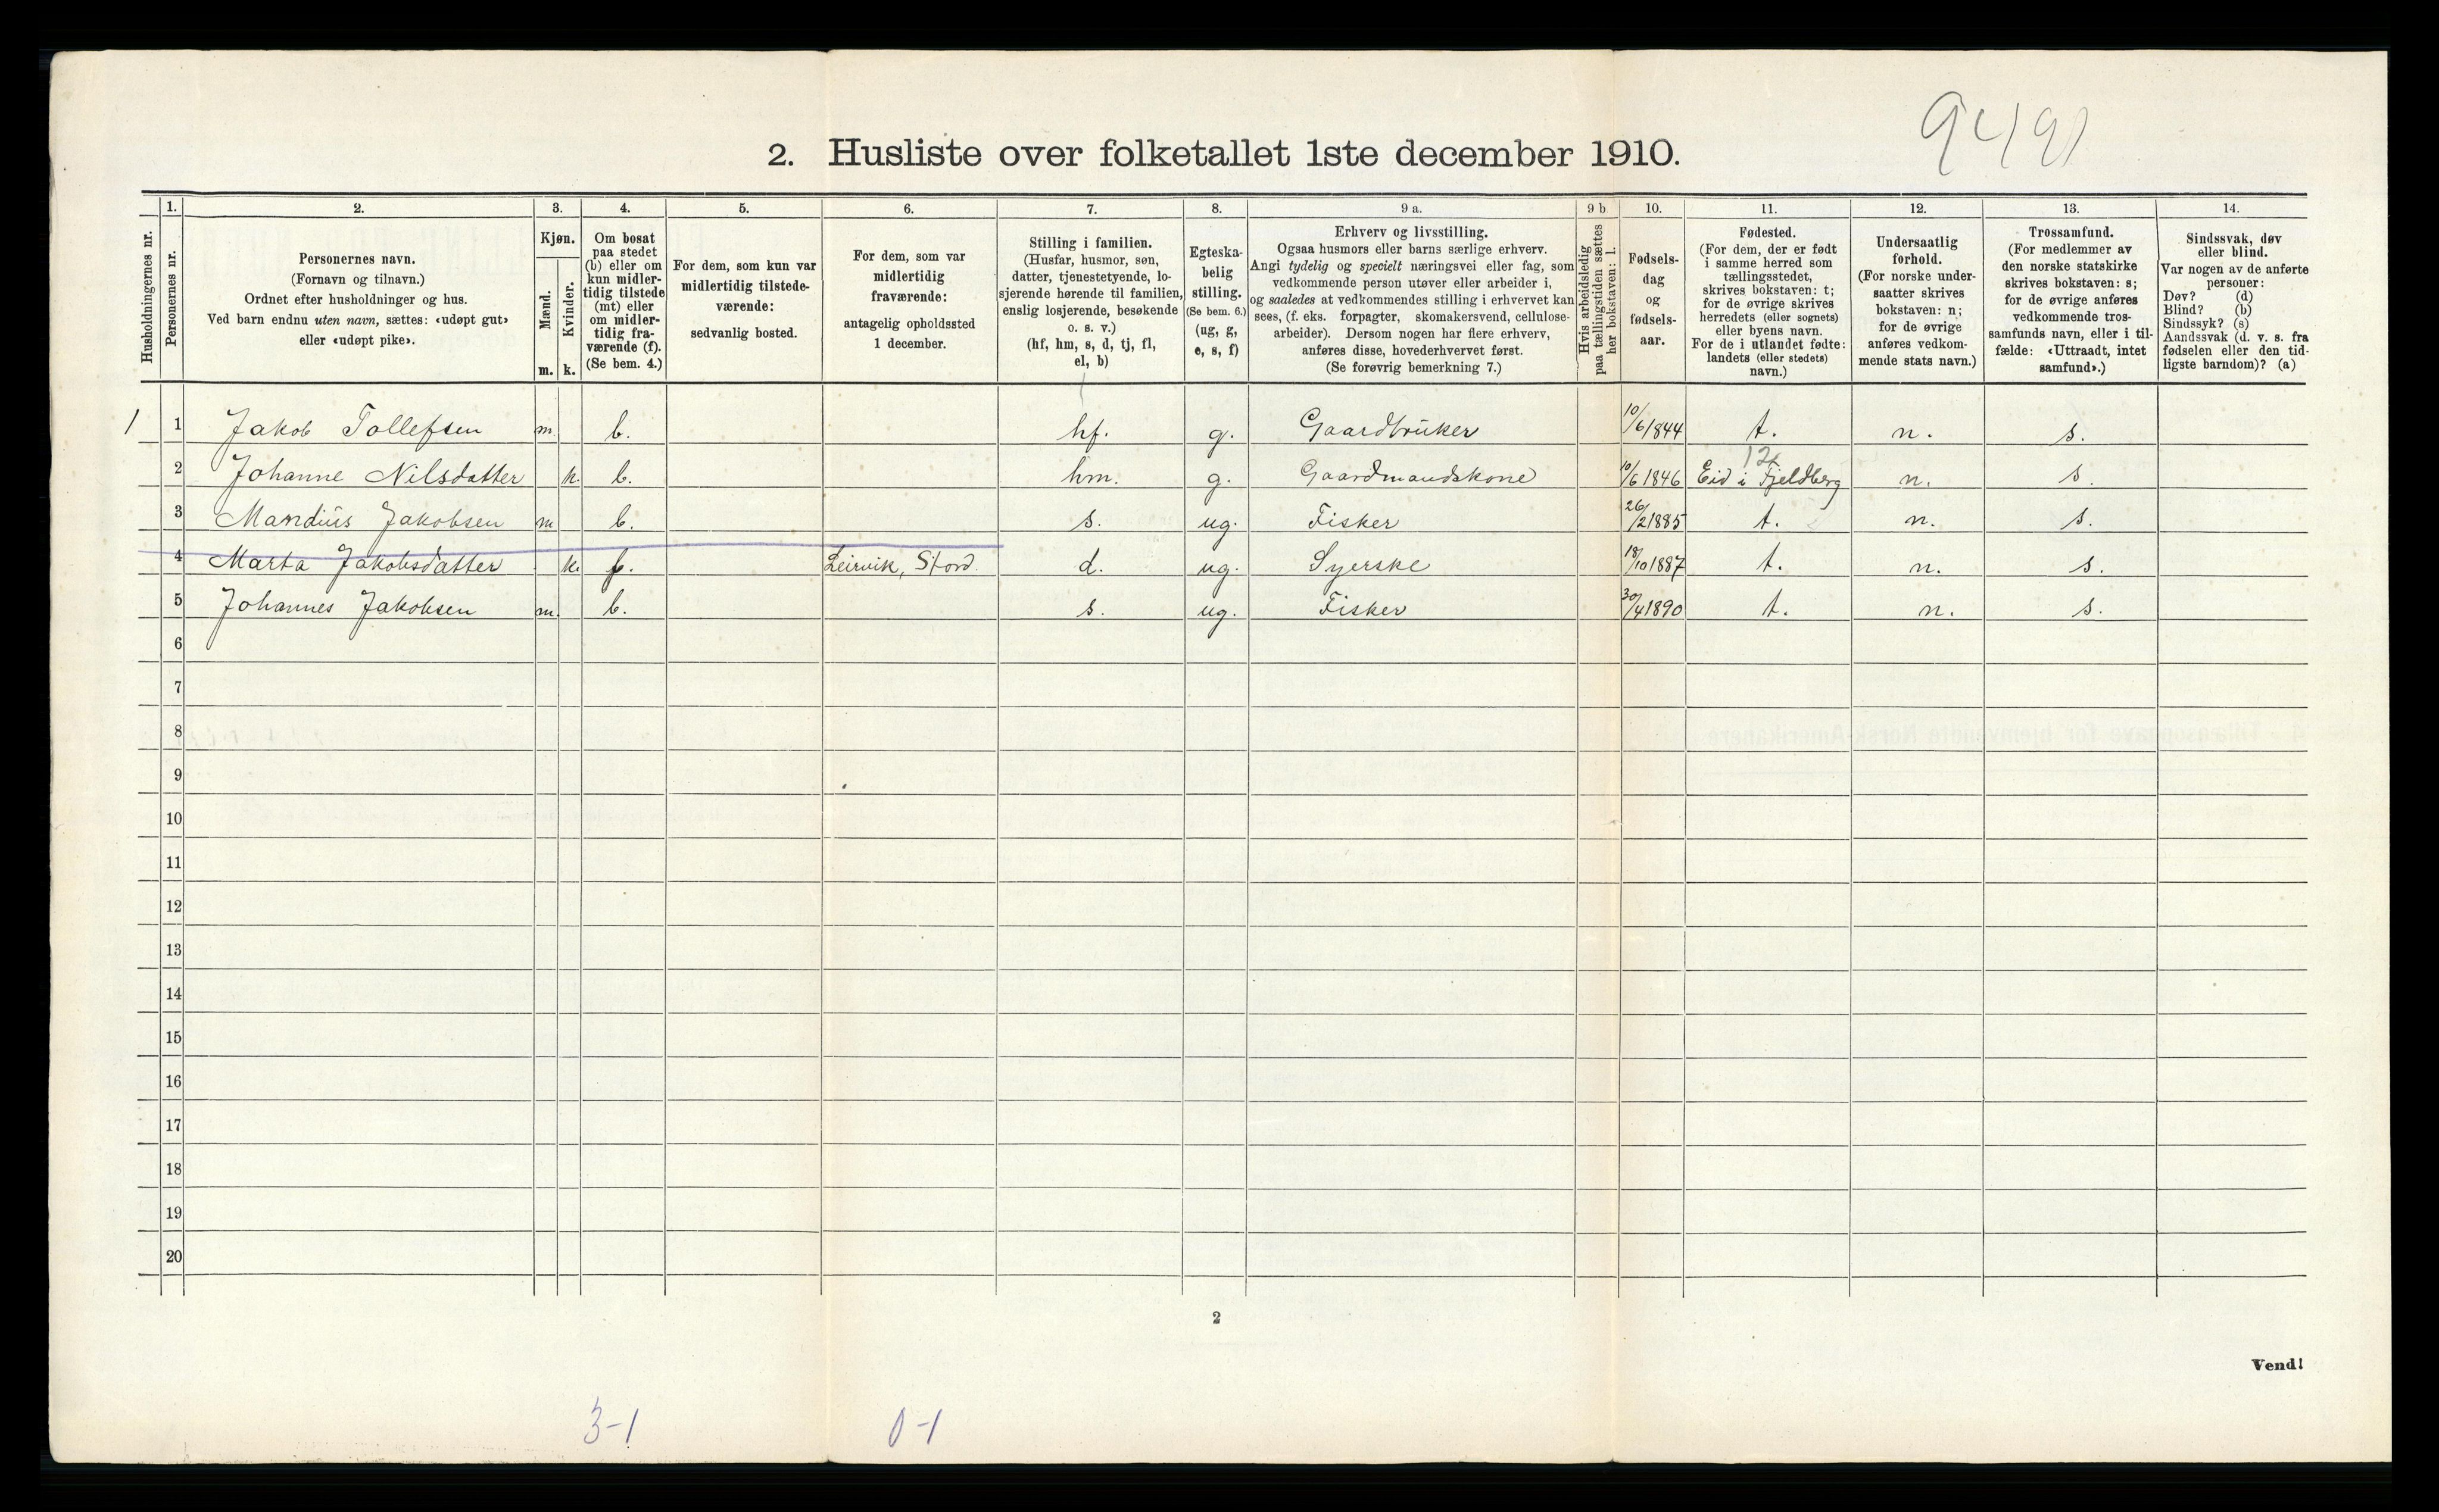 9491
2. Husliste over folketallet 1ste december 1910.
Husholdningernes nr.
1.
Personernes nr.
2.
Personernes navn.
(Fornavn og tilnavn.)
Ordnet efter husholdninger og hus.
Ved barn endnu uten navn, sættes: «udøpt gut»
eller «udøpt pike».
3.
Kjøn.
Mænd.
m.
Kvinder.
k.
4.
Om bosat
paa stedet
(b) eller om
kun midler-
tidig tilstede
(mt) eller
om midler-
tidig fra-
værende (f).
(Se bem. 4.)
5.
For dem, som kun var
midlertidig tilstede-
værende:
sedvanlig bosted.
6.
For dem, som var
midlertidig
fraværende:
antagelig opholdssted
1 december.
7.
Stilling i familien.
(Husfar, husmor, søn,
datter, tjenestetyende, lo-
sjerende hørende til familien,
enslig losjerende, besøkende
o. s. v.)
(hf, hm, s, d, tj, fl,
el, b)
8.
Egteska-
belig
stilling.
(Se bem. 6.)
(ug, g,
e, s, f)
9 a.
Erhverv og livsstilling.
Ogsaa husmors eller barns særlige erhverv.
Angi tydelig og specielt næringsvei eller fag, som
vedkommende person utøver eller arbeider i,
og saaledes at vedkommendes stilling i erhvervet kan
sees, (f. eks. forpagter, skomakersvend, cellulose-
arbeider). Dersom nogen har flere erhverv,
anføres disse, hovederhvervet først.
(Se forøvrig bemerkning 7.)
9 b
Hvis arbeidsledig
paa tællingstiden sættes
her bokstaven: l.
10.
Fødsels-
dag
og
fødsels-
aar.
11.
Fødested.
(For dem, der er født
i samme herred som
tællingsstedet,
skrives bokstaven: t;
for de øvrige skrives
herredets (eller sognets)
eller byens navn.
For de i utlandet fødte:
landets (eller stedets)
navn.)
12.
Undersaatlig
forhold.
(For norske under-
saatter skrives
bokstaven: n;
for de øvrige
anføres vedkom-
mende stats navn.)
13.
Trossamfund.
(For medlemmer av
den norske statskirke
skrives bokstaven: s;
for de øvrige anføres
vedkommende tros-
samfunds navn, eller i til-
fælde: «Uttraadt, intet
samfund».)
14.
Sindssvak, døv
eller blind.
Var nogen av de anførte
personer:
Døv? (d)
Blind? (b)
Sindssyk? (s)
Aandssvak (d. v. s. fra
fødselen eller den tid-
ligste barndom)? (a)
1 1 Jakob Tollefsen m. b. hf. g. Gaardbruker 10/6 1844 t. n. s.
2 Johanne Nilsdatter k. b. hm. g. Gaardmandskone 10/6 1846 Eid i Fjeldberg n. s.
3 Mandius Jakobsen m b. s. ug. Fisker 26/2 1885 t. n. s.
4 Marta Jakobsdatter k. f. Leirvik, Stord. d. ug. Syerske 18/10 1887 t. n. s.
5 Johannes Jakobsen m. b. s. ug. Fisker 30/4 1890 t. n. s.
6
7
8
9
10
11
12
13
14
15
16
17
18
19
20
2
Vend!
3-1 0-1